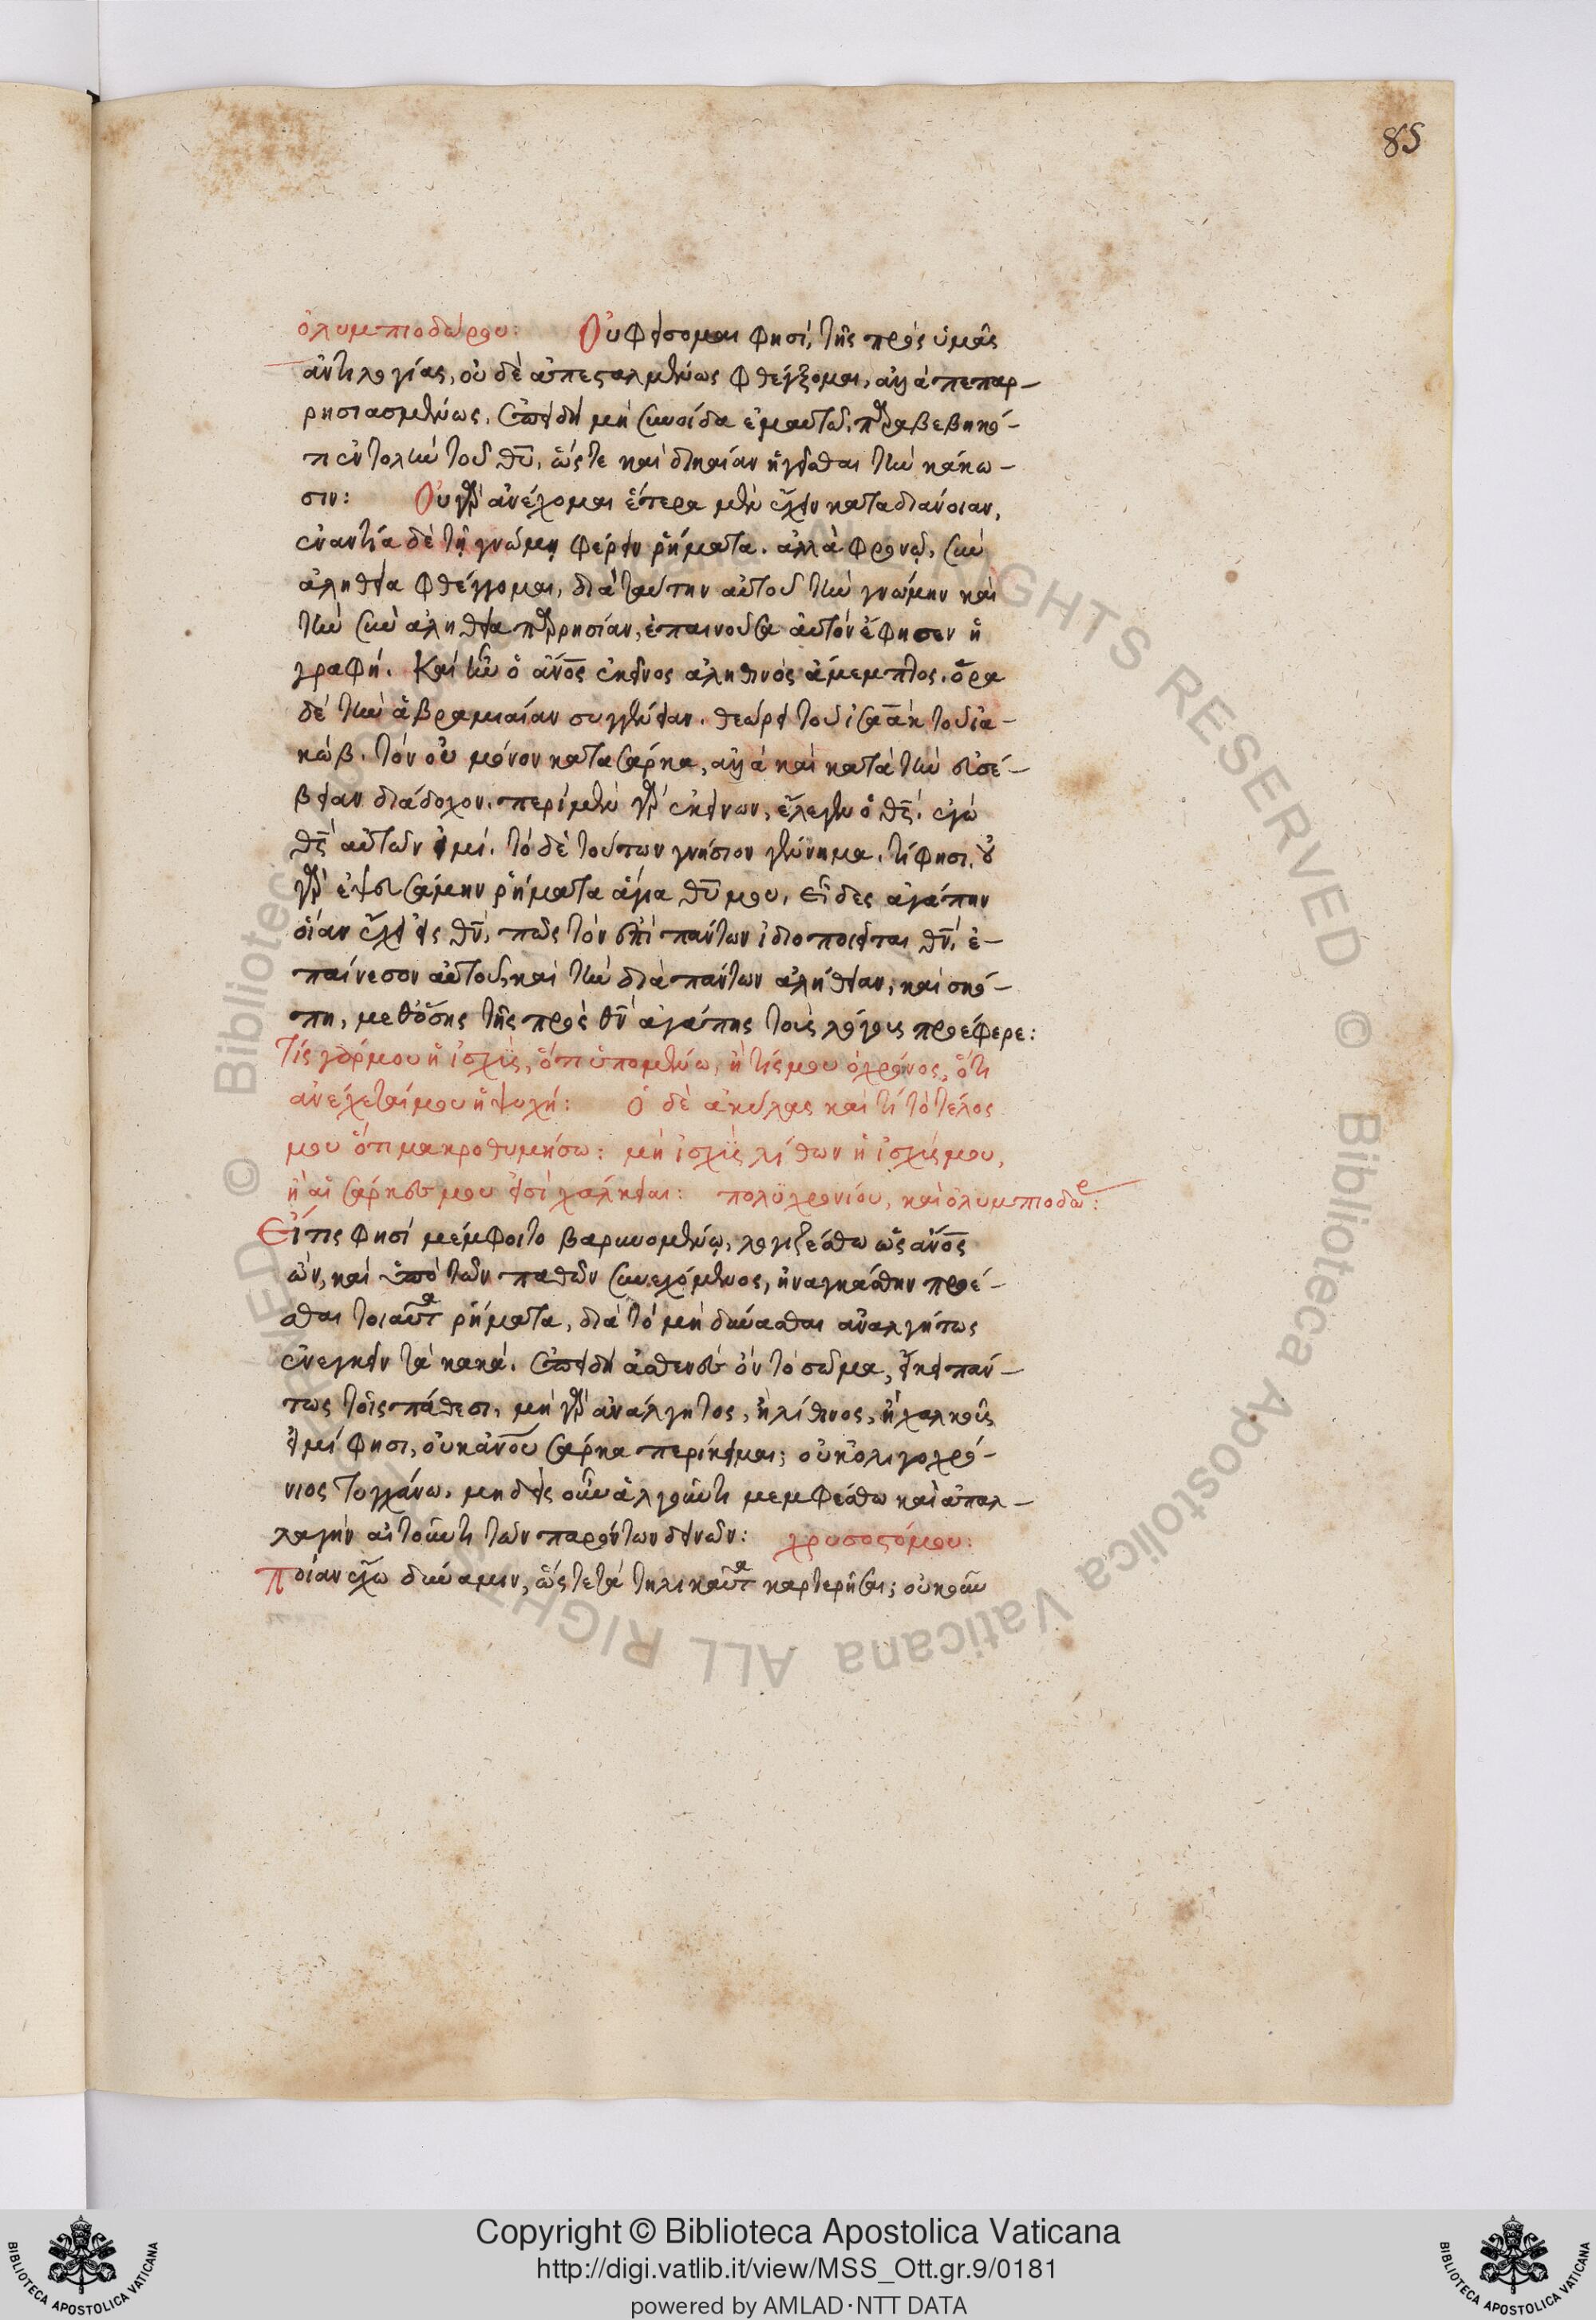 85
ὀλυμπιοδώρου: Οὐ φείσομαι φησὶ, τῆς πρὸς ὑμᾶς
ἀντιλογίας, οὐδὲ ἀπεσταλμένως φθέγξομαι, ἀλλὰ πεπαρ-
ρησιασμένως. ἐπειδὴ μὴ συνοίδα ἐμαυτῶ, παραβεβηκό-
τι ἐντολὴν τοῦ θυ, ὥστε καὶ δικαίαν ἡγεῖσθαι τὴν κάκω-
σιν: Οὐ γὰρ ἀνέχομαι ἕτερα μὲν ἔχειν κατα διάνοιαν,
ἐναντία δὲ τῇ γνώμῃ φέρειν ῥήματα. ἀλλὰ φρονῶ, σὺν
ἀληθεία φθέγγομαι, διὰ ταύτην αὐτοῦ τὴν γνώμην καὶ
τὴν σὺν ἀληθεία παρρησίαν, ἐπαινοῦσα αὐτὸν ἔφησεν ἡ
γραφή. Καὶ ἦν ὁ ἄνος ἐκεῖνος ἀληθινὸς ἄμεμπτος. ὅρα
δὲ τὴν ἀβραμιαίαν συγγένειαν. θεώρει τοῦ ἰσαὰκ τοῦ ἰα-
κώβ. τὸν οὐ μόνον κατα σάρκα, ἀλλὰ καὶ κατὰ τὴν εὐσέ-
βειαν διάδοχον. περὶ μὲν γὰρ ἐκείνων, ἔλεγεν ὁ θς. ἐγὼ
θς αὐτῶν εἰμί. τὸ δὲ τούτων γνήσιον γέννημα. τί φησι. οὐ
γὰρ ἐψευσάμην ῥήματα ἅγια θυ μου. εἶδες ἀγάπην
οἵαν ἔχει εἰς θν, πῶς τὸν ἐπὶ πάντων ἰδιοποιεῖται θν, ἐ-
παίνεσον αὐτοῦ καὶ τὴν διὰ πάντων ἀλήθειαν, καὶ σκό-
πει, μεθ ὅσης τῆς πρὸς θν ἀγάπης τοὺς λόγους προέφερε:
Τίς γάρ μου ἡ ἰσχὺς, ὅτι ὑπομένω, ἢ τίς μου ὁ χρόνος, ὅτι
ἀνέχεταί μου ἡ ψυχή: Ὁ δὲ ἀκύλας καὶ τί τὸ τέλος
μου ὅτι μακροθυμήσω: μὴ ἰσχὺς λίθων ἡ ἰσχύς μου,
ἢ αἱ σάρκες μου εἰσὶ χάλκειαι: πολυχρονίου, καὶ ὀλυμπιοδώρ:
Εἴ τις φησὶ μέμφοιτο βαρυνομένω, λογιζέσθω ὡς ἄνος
ὢν, καὶ ὑπὸ τῶν παθῶν συνεχόμενος, ἠναγκάσθην προέ-
σθαι τοιαῦτα ῥήματα, διὰ τὸ μὴ δύνασθαι ἀναλγήτως
ἐνεγκεῖν τὰ κακά. ἐπειδὴ ἀσθενὲς ὂν τὸ σῶμα, εἴκει πάν-
τως τοῖς πάθεσι, μὴ γὰρ ἀνάλγητος, ἢ λίθινος, ἢ χαλκοῦς
εἰμί φησι, οὐκ ἀνου σάρκα περίκειμαι; οὐκ ὀλιγοχρό-
νιος τυγχάνω. μηδεὶς οὖν ἀλγοῦντι μεμφέσθω καὶ ἀπαλ-
λαγὴν αἰτοῦντι τῶν παρόντων δεινῶν: χρυσοστόμου:
Ποίαν ἔχω δύναμιν, ὥστε τὰ τηλικαῦτα καρτερῆσαι; οὐκοῦν
Copyright © Biblioteca Apostolica Vaticana
http://digi.vatlib.it/view/MSS_Ott.gr.9/0181
powered by AMLAD·NTT DATA
BIBLIOTECA APOSTOLICA VATICANA
BIBLIOTECA APOSTOLICA VATICANA